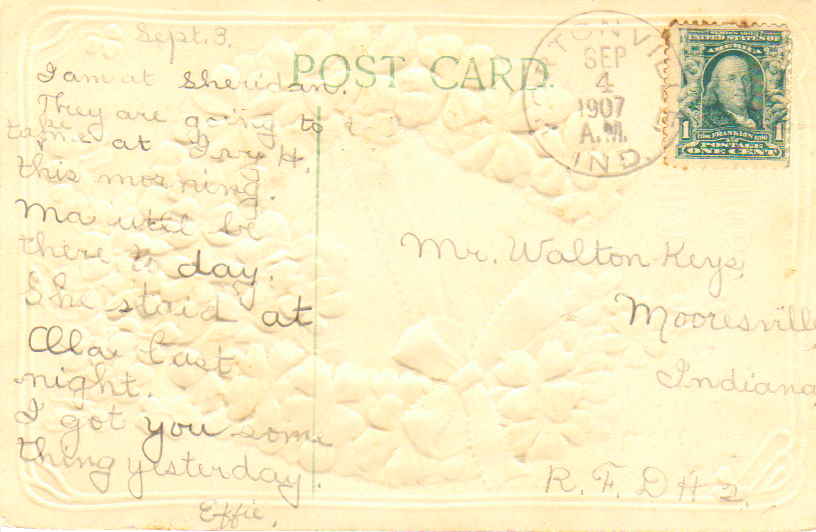 Sept. 3.
I am at Sheridan.
They are going to
me at Ivy H.
this morning.
Ma will be
there to day.
She staid at
Ollar last
night.
I got you some
thing yesterday.
Effie.
POST CARD.
SEP
4
1907
A.M.
IND.
UNITED STATES OF
AMERICA
1
FRANKLIN
1
POSTAGE
ONE CENT
Mr. Walton Keys,
Mooresville
Indiana
R. F. D # 2.